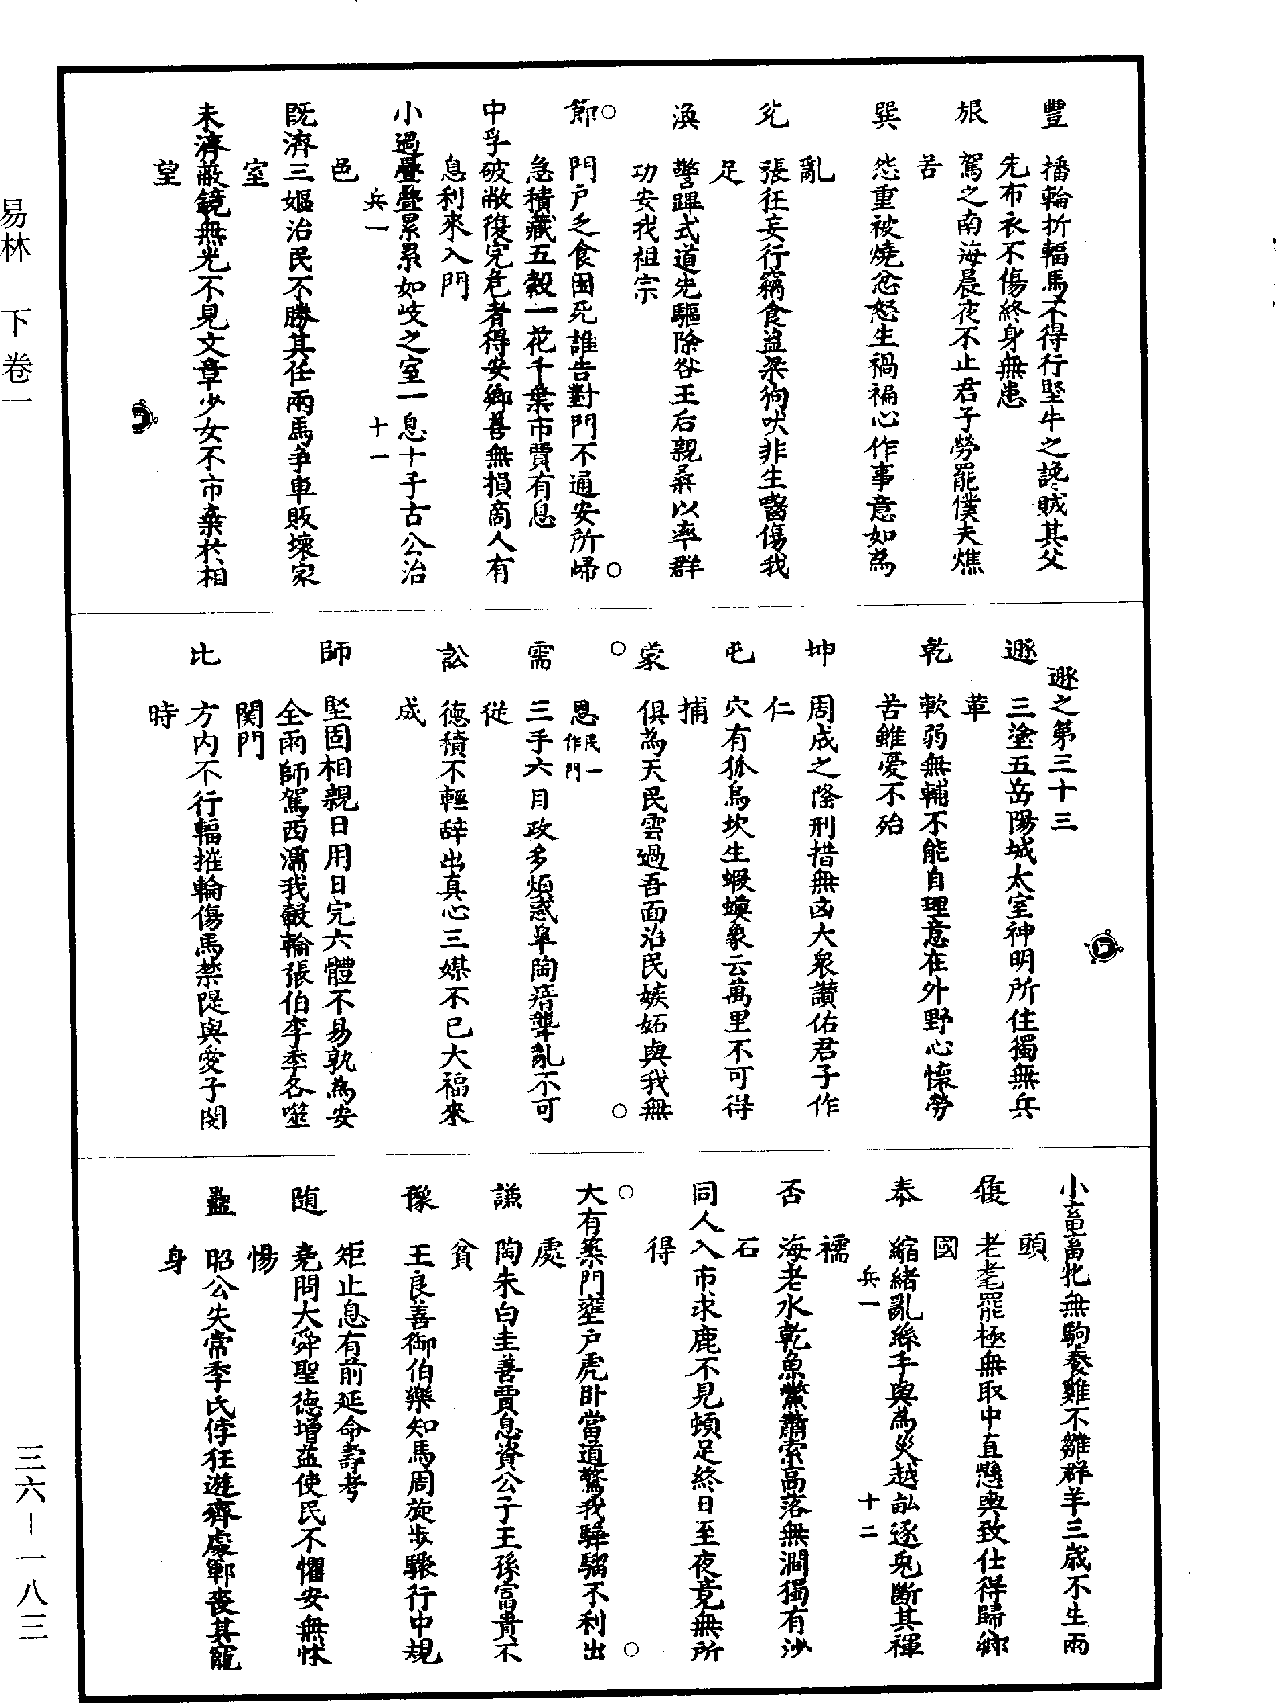 豐 播輪折輻馬不得行堅牛之讒賊其父
先布衣不傷終身無患
旅 駕之南海晨夜不止君子勞罷僕夫憔
苦
巽 怨重被燒忿怒生禍褊心作事意如為
亂
兌 張狂妄行竊食盜粱狗吠非生齧傷我
足
渙 警蹕式道先驅除咎王后親桑以率群
功安我祖宗
節 門戶乏食困死誰告對門不通安所歸
急積藏五穀一花千葉市賈有息
中孚破敝復完危者得安鄉善無損商人有
息利來入門
小過疊疊累累如岐之室一息十子古公治
邑
兵一 十一
既濟三嫗治民不勝其任兩馬爭車敗壞家
室
未濟蔽鏡無光不見文章少女不市棄於相
望
遯之第三十三
遯 三塗五岳陽城太室神明所住獨無兵
革
乾 軟弱無輔不能自理意在外野心懷勞
苦雖憂不殆
坤 周成之隆刑措無凶大衆讚佑君子作
仁
屯 穴有狐烏坎生蝦蟆象云萬里不可得
捕
蒙 俱為天民雲過吾面治民嫉妬與我無
恩 民一作門
需 三手六目政多煩惑皐陶瘖聾亂不可
從
訟 德積不輕辞出真心三媒不已大福來
成
師 堅固相親日用日完六體不易執為安
全雨師駕西濡我轂輪張伯李季各噬
関門
比 方內不行輻摧輪傷馬禁隄與愛子閔
時
小畜畜牝無駒養雞不雛群羊三歲不生兩
頭
復 老耄罷極無取中直懸輿致仕得歸鄉
國
泰 縮緒亂絲手與為災越訕逐兎斷其褌
襦
兵一 十二
否 海老水乾魚鱉蕭索高落無澗獨有沙
石
同人入市求鹿不見頓足終日至夜竟無所
得
大有築門壅戶虎卧當道驚我驊騮不利出
處
謙 陶朱白圭善賈息資公子王孫富貴不
貧
豫 王良善御伯樂知馬周旋步驟行中規
矩止息有前延命壽考
随 堯問大舜聖德增益使民不懼安無怵
惕
蠱 昭公失常季氏悖狂遊齊處鄆喪其寵
身
易林 下卷一
三六—一八三